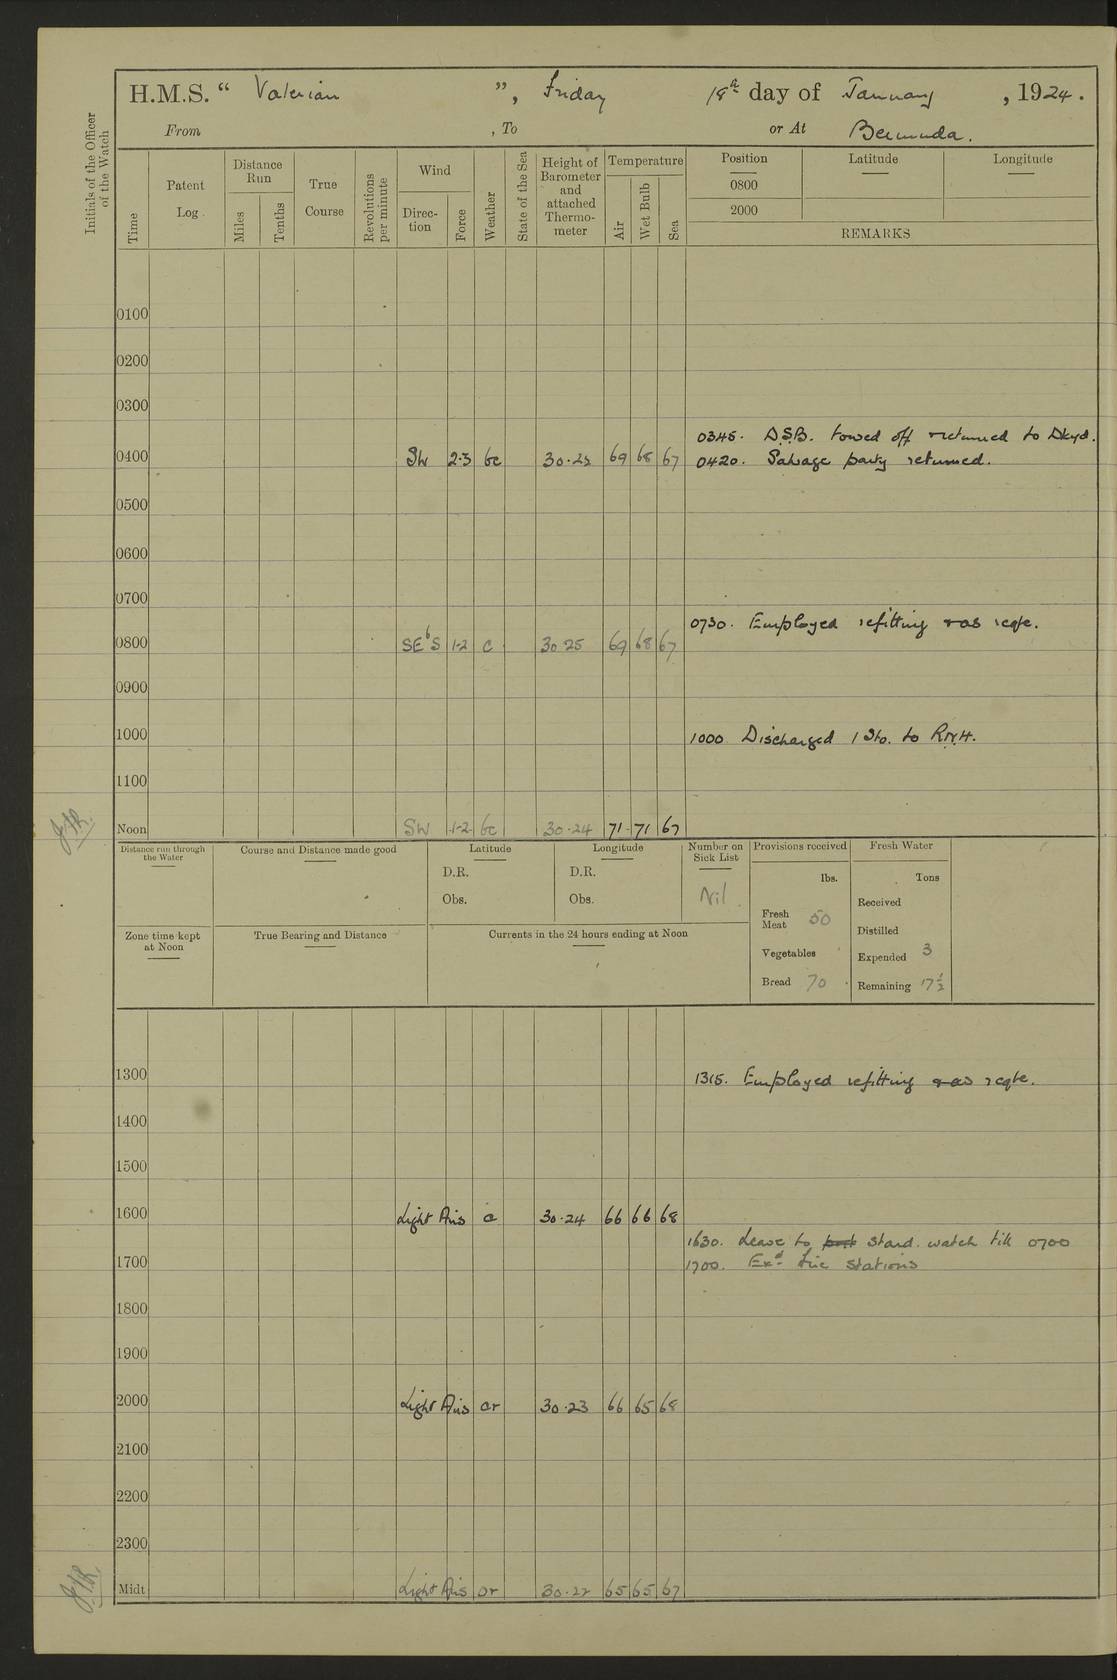 H.M.S. “ Valerian ”, Friday 18th day of January, 1924.
From , To or At Bermuda.
Initials of the Officer of the Watch
Time
Patent Log.
Distance Run
Miles
Tenths
True Course
Revolutions per minute
Wind
Direction
Force
Weather
State of the Sea
Height of Barometer and attached Thermometer
Temperature
Air
Wet Bulb
Sea
Position Latitude Longitude
0800
2000
REMARKS
0100
0200
0300
0345. D.S.B. towed off returned to Dkyd.
0400 SW 2·3 bc 30·25 69 68 67 0420. Salvage party returned.
0500
0600
0700
0730. Employed refitting & as reqte.
0800 SEbS 1-2 c 30 25 69 68 67
0900
1000 1000 Discharged 1 Sto. to R.N.H.
1100
Noon SW 1-2 bc 30·24 71 71 67
Distance run through the Water
Course and Distance made good
Latitude
D.R.
Obs.
Longitude
D.R.
Obs.
Number on Sick List
Nil
Provisions received
lbs.
Fresh Meat 50
Vegetables
Bread 70
Fresh Water
Tons
Received
Distilled
Expended 3
Remaining 17½
Zone time kept at Noon
True Bearing and Distance
Currents in the 24 hours ending at Noon
1300 1315. Employed refitting & as reqte.
1400
1500
1600 Light Airs o 30·24 66 66 68
1630. Leave to port stard. watch till 0700
1700 1700. Exd. fire stations
1800
1900
2000 Light Airs or 30·23 66 65 68
2100
2200
2300
Midt Light Airs or 30·22 65 65 67